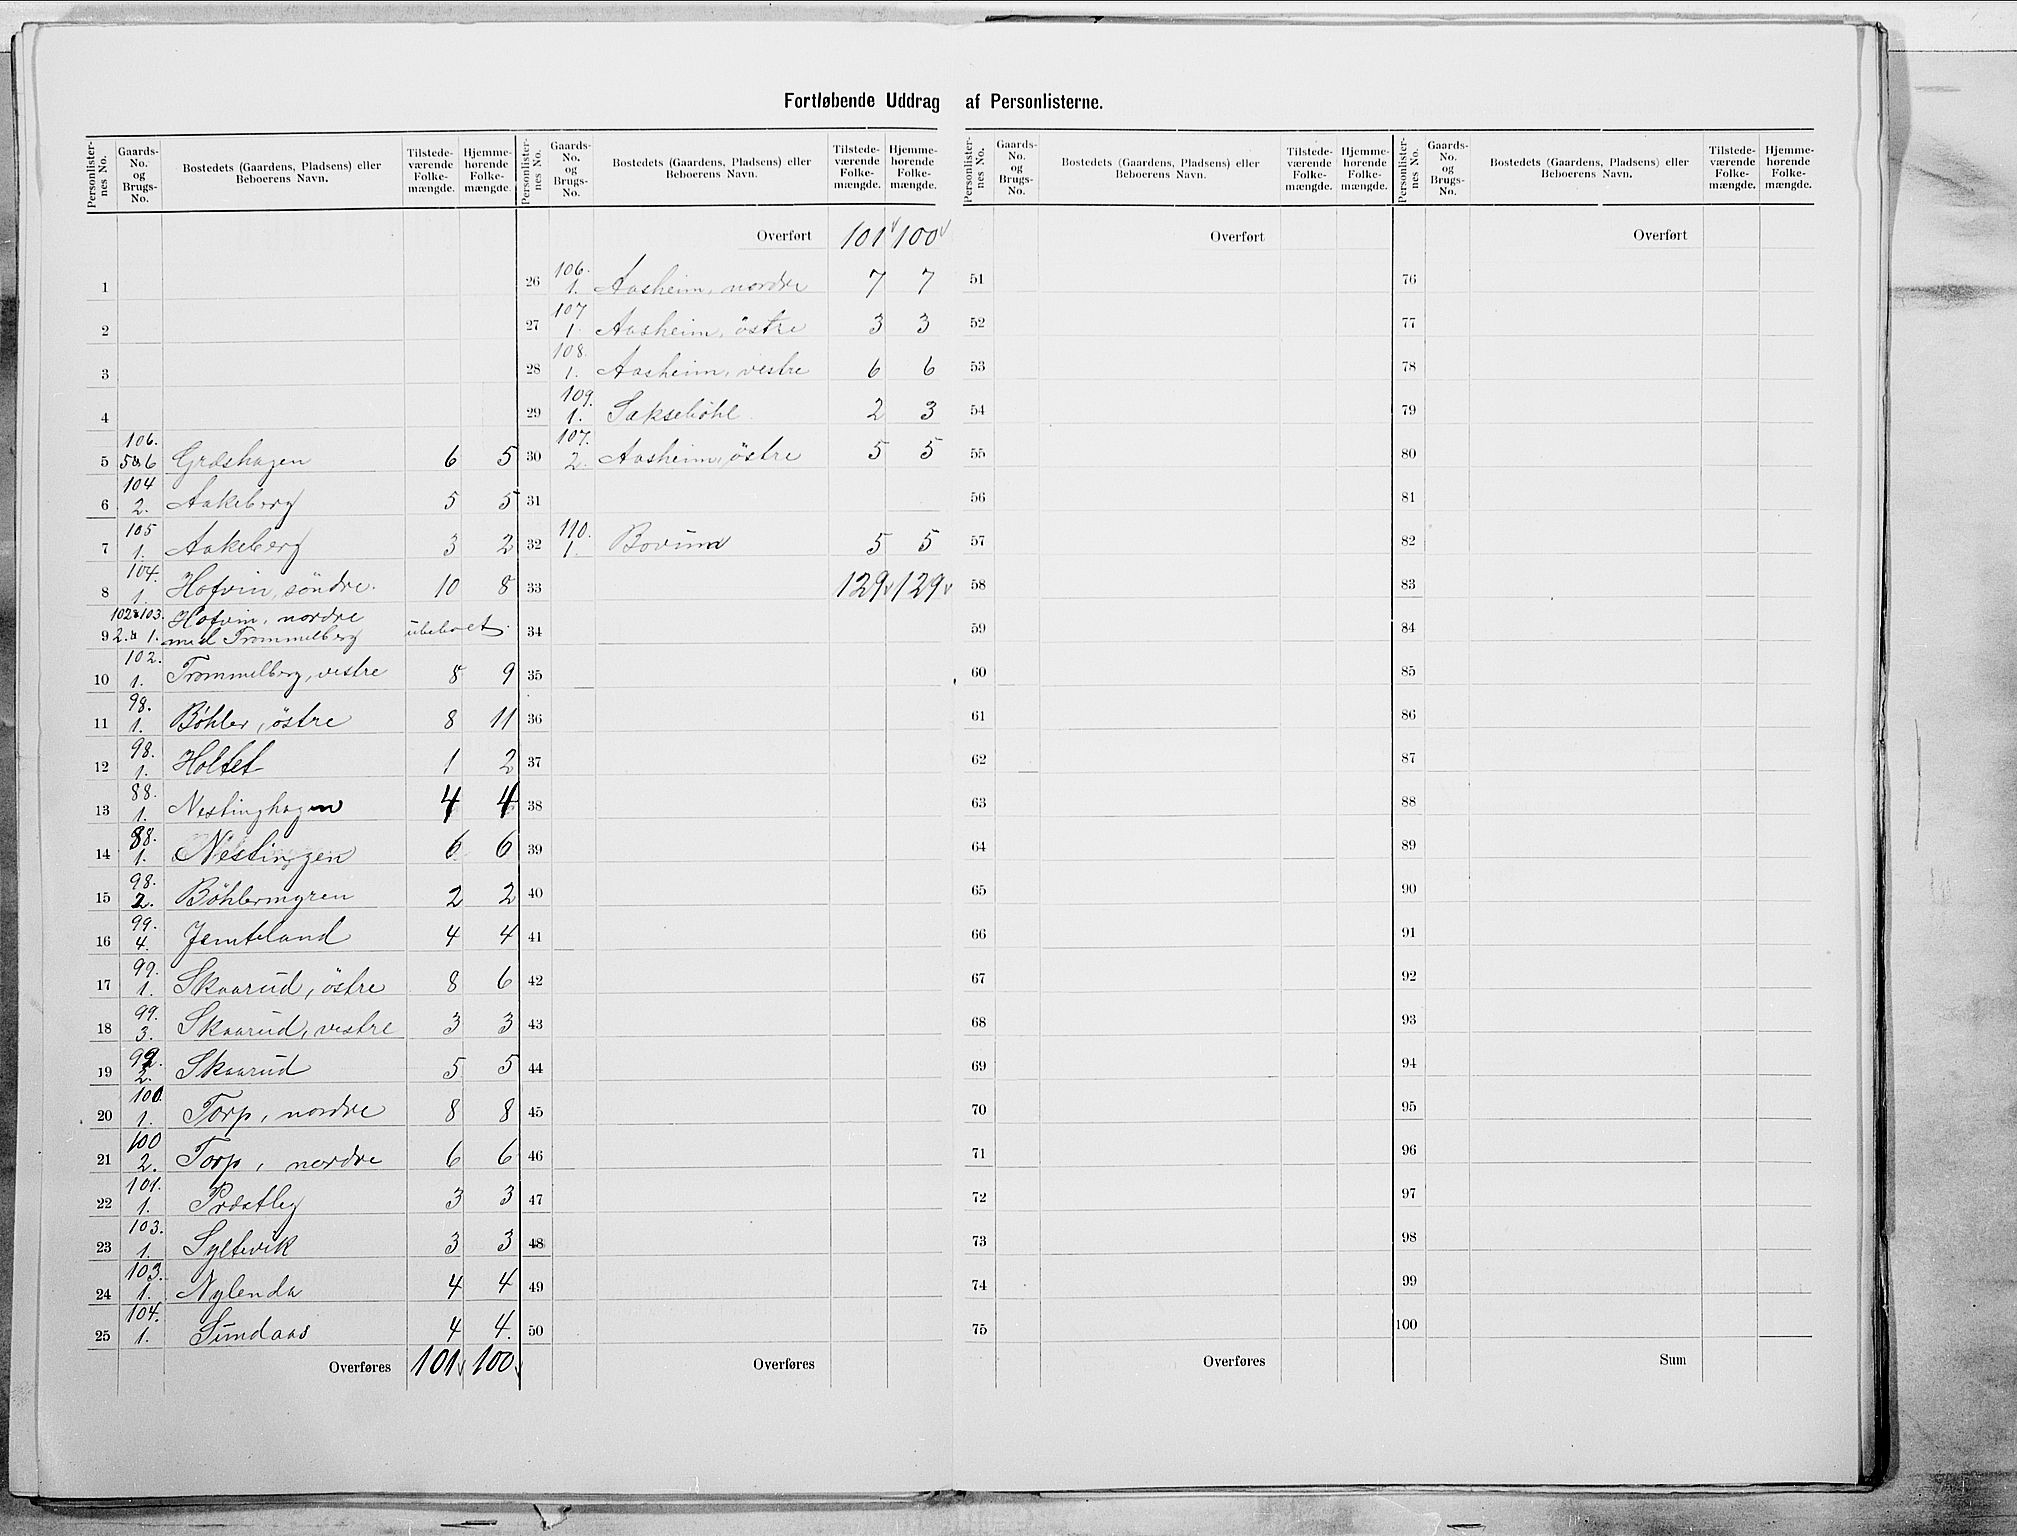 Fortløbende Uddrag af Personlisterne.
Personlister-nes No. | Gaards-No. og Brugs-No. | Bostedets (Gaardens, Pladsens) eller Beboerens Navn. | Tilstede-værende Folke-mængde. | Hjemme-hørende Folke-mængde.
1
2
3
4
5 | 106. 5&6 | Græshagen | 6 | 5
6 | 104 2. | Aakeberg | 5 | 5
7 | 105 1. | Aakeberg | 3 | 2
8 | 104. 1. | Hofvin, söndre. | 10 | 8
9 | 102&103. 2.&1. | Hofvin, nordre med Trommelberg | ubeboet.
10 | 102. 1. | Trommelberg, vestre | 8 | 9
11 | 98. 1. | Böhler, östre | 8 | 11
12 | 98. 1. | Holtet | 1 | 2
13 | 88. 1. | Nestinghagen | 4 | 4
14 | 88. 1. | Nestingen | 6 | 6
15 | 98. 2. | Böhlermyren | 2 | 2
16 | 99. 4. | Jemteland | 4 | 4
17 | 99. 1. | Skaarud, östre | 8 | 6
18 | 99. 3. | Skaarud, vestre | 3 | 3
19 | 99. 2. | Skaarud | 5 | 5
20 | 100. 1. | Torp, nordre | 8 | 8
21 | 100 2. | Torp, nordre | 6 | 6
22 | 101. 1. | Præstley | 3 | 3
23 | 103. 1. | Syltevik | 3 | 3
24 | 103. 1. | Nylenda | 4 | 4
25 | 104. 1. | Sundaas | 4 | 4.
Overføres | 101 | 100
Personlister-nes No. | Gaards-No. og Brugs-No. | Bostedets (Gaardens, Pladsens) eller Beboerens Navn. | Tilstede-værende Folke-mængde. | Hjemme-hørende Folke-mængde.
Overført | 101 | 100
26 | 106. 1. | Aasheim, nordre | 7 | 7
27 | 107 1. | Aasheim, östre | 3 | 3
28 | 108. 1. | Aasheim, vestre | 6 | 6
29 | 109. 1. | Saksebøhl | 2 | 3
30 | 107. 2. | Aasheim, östre | 5 | 5
31
32 | 110. 1. | Bovum | 5 | 5
33 | 129 | 129
34
35
36
37
38
39
40
41
42
43
44
45
46
47
48
49
50
Overføres
Personlister-nes No. | Gaards-No. og Brugs-No. | Bostedets (Gaardens, Pladsens) eller Beboerens Navn. | Tilstede-værende Folke-mængde. | Hjemme-hørende Folke-mængde.
Overført
51
52
53
54
55
56
57
58
59
60
61
62
63
64
65
66
67
68
69
70
71
72
73
74
75
Overføres
Personlister-nes No. | Gaards-No. og Brugs-No. | Bostedets (Gaardens, Pladsens) eller Beboerens Navn. | Tilstede-værende Folke-mængde. | Hjemme-hørende Folke-mængde.
Overført
76
77
78
79
80
81
82
83
84
85
86
87
88
89
90
91
92
93
94
95
96
97
98
99
100
Sum